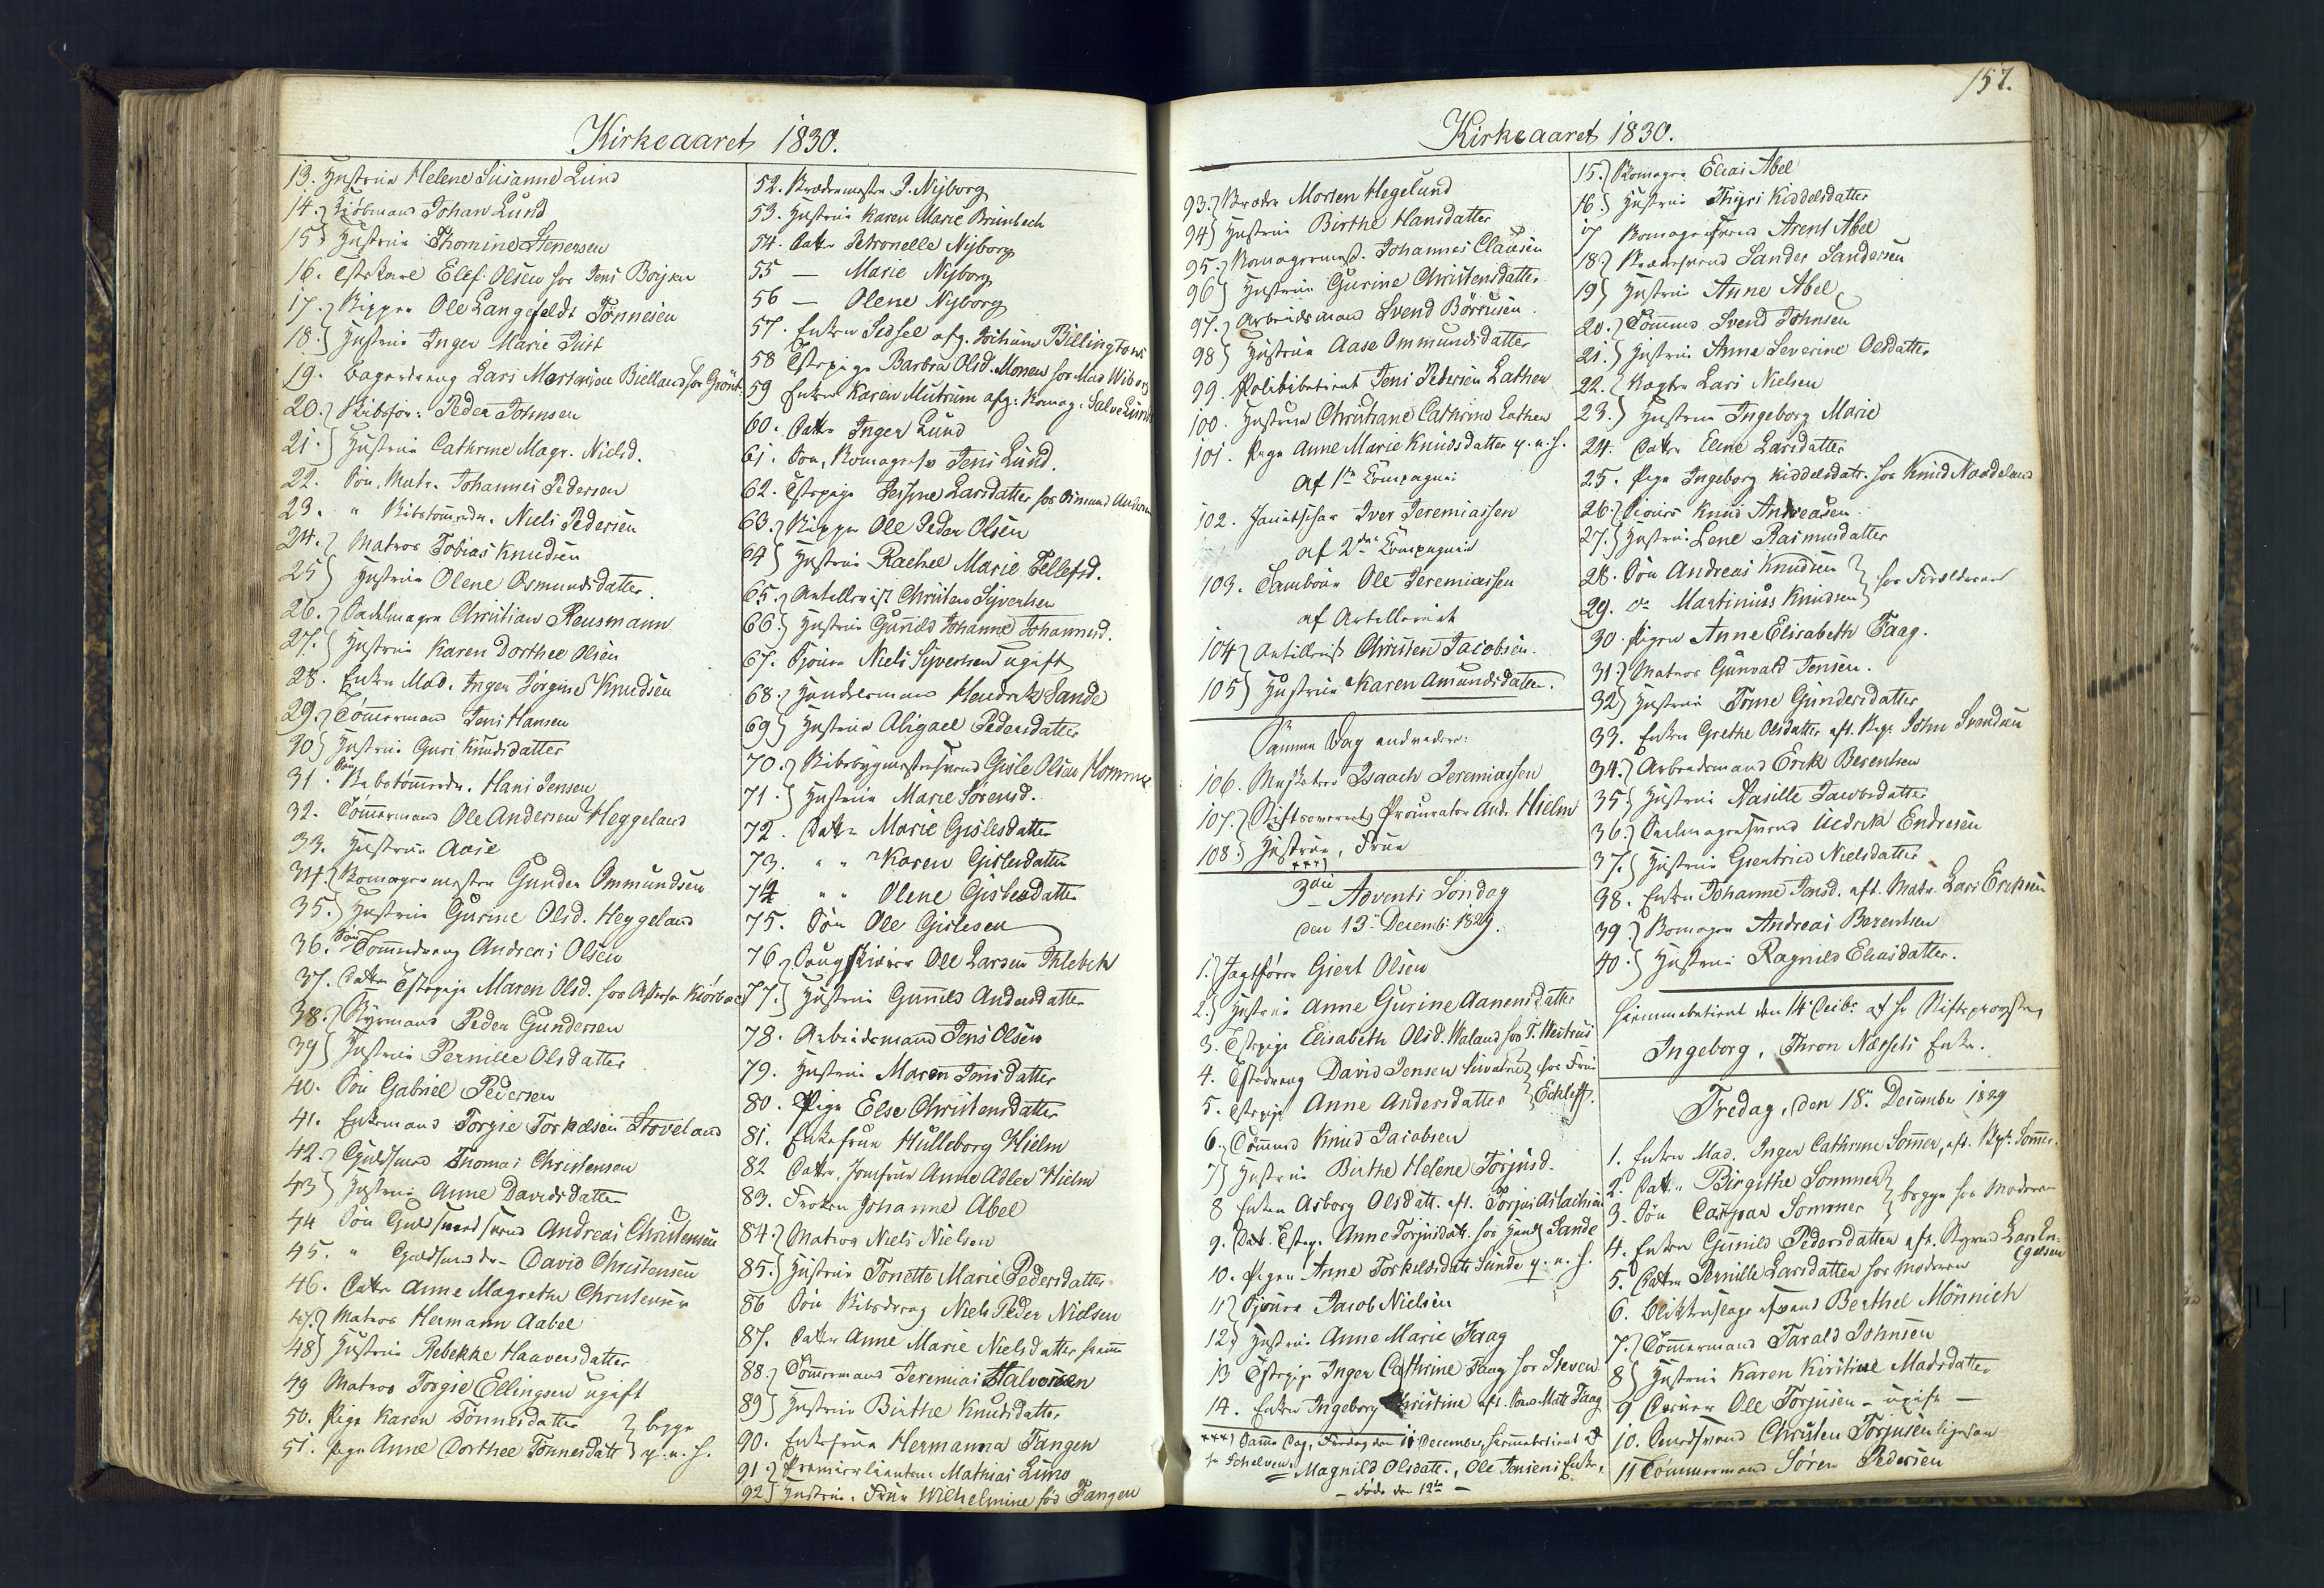 Kirkeaaret 1830.
13. Hustrue Helene Susanne Lund
14. Kiøbmand Johan Lund
15 Hustrue Thomine Stenersen
16. Estekarl Elef Olsen hos Jens Boysen
17. Skipper Ole Langefeldt Tønnesen
18. Hustrue Inger Marie Juit
19. Bagerdreng Lars Bielland hos Grønb.
20. Skibsfør: Peder Johnsen
21. Hustrue Cathrine Magr. Nielsd.
22. Søn, Matr. Johannes Pedersen
23. " Skibstømrdr. Niels Pedersen
24. Matros Tobias Knudsen
25 Hustrue Olene Osmundsdatter.
26. Sadelmager Christian Reusmann
27. Hustrue Karen Dorthee Olsen
28. Enken Mad. Inger Jørgine Knudsen
29. Tømmermand Jens Hansen
30 Hustrue Guri Knudsdatter
31. Søn Skibstømrdr. Hans Jensen
32. Tømmermand Ole Andersen Heggeland
33. Hustrue Aase
34. Skomagermester Gunder Ommundsen
35. Hustrue Gurine Olsd. Heggeland
36. Søn Tømrdreng Andreas Olsen
37. Datter Estepige Maren Olsd. hos
38. Styrmand Peder Gundersen
39 Hustrue Pernille Olsdatter
40. Søn Gabriel Pedersen
41. Enkemand Torgie Torkelsen Stoveland
42. Guldsmed Thomas Christensen
43 Hustrue Anne Davidsdatter
44 Søn Guldsmedsvend Andreas Christensen
45. " Guldsmeddr. David Christensen
46. Datter Anne Magrethe Christensen
47. Matros Hermann Aabel
48 Hustrue Rebekke Haaversdatter
49 Matros Torgie Ellingsen ugift
50. Pige Karen Tønnesdatter } begge
51. Pige Anne Dorthee Tønnesdatt } p. n. h.
52. Skrædermester P. Nyborg
53. Hustrue Karen Marie Brumbech
54. Datter Petronelle Nyborg
55 — Marie Nyborg
56 — Olene Nyborg
57. Enken Sidsel afg. Billingtons
58 Estepige Barbra Olsd. Monen hos Mad Wiborg
59 Enken Karen Mutrum afg: Skomag: Salve Lund
60. Datter Inger Lund
61. Søn, Skomagersv Jens Lund.
62. Estepige Larsdatter hos
63. Skipper Ole Peder Olsen
64 Hustrue Rachel Marie Tellefsd.
65. Artillerist Christen Syvertsen
66. Hustrue Gunild Johanne Johannesd.
67. Tjener Niels Syvertsen ugift
68. Handelsmand Hendrik Sande
69 Hustrue Abigael Pedersdatter
70. Skibsbygmestersvend Gisle Olsen Homme
71. Hustrue Marie Sørensd.
72. Datter Marie Gislesdatter
73. " " Karen Gislesdatter
74 " " Olene Gislesdatter
75. Søn Ole Gislesen
76. Ole Larsen Thlebek
77. Hustrue Gunnild Andersdatter
78. Arbeidsmand Jens Olsen
79. Hustrue Maren Jensdatter
80. Pige Else Christensdatter
81. Enkefrue Hulleborg Hielm
82 Datter, Jomfrue Anne Adler Hielm
83. Frøken Johanne Abel
84. Matros Niels Nielsen
85. Hustrue Tonette Marie Pedersdatter
86 Søn Skibsdreng Niels Peder Nielsen
87. Datter Anne Marie Nielsdatter hiemme
88. Tømmermand Jeremias Halvorsen
89 Hustrue Birthe Knudsdatter
90. Enkefrue Hermanna Tangen
91. Premierlieutenant Mathias Lund
92 Hustrue, Frue Wilhelmine fød Tangen
157.
Kirkeaaret 1830.
93. Skræder Morten Hegelund
94 Hustrue Birthe Hansdatter
95. Skomagermest. Johannes Clausen
96 Hustrue Gurine Christensdatter
97. Arbeidsmand Svend Børresen
98 Hustrue Aase Ommundsdatter
99. Politibetient Jens Pedersen Lathen
100. Hustrue Christiane Cathrine Lathen
101. Pige Anne Marie Knudsdatter p. n. h.
af 1ste Compagnie
102. Janitschar Iver Jeremiassen
af 2det Compagnie
103. Tambour Ole Jeremiassen
af Artilleriet
104 Artillerist Christen Jacobsen.
105 Hustrue Karen Amundsdatter.
Samme Dag endvidere:
106. Musketeer Isaach Jeremiassen
107. Stiftsoverrets Procurator And. Hielm
108. Hustrue, Frue
xxx)
3die Advents Søndag
den 13de Decemb: 1829.
1. Jagtfører Giert Olsen
2. Hustrue Anne Gurine Aanensdatter
3. Estepige Elisabeth Olsd. Waland hos T.
4. Estedreng David Jensen } hos Frue
5. Estepige Anne Andersdatter } Eckleff.
6. Tømmermd Knud Jacobsen
7 Hustrue Birthe Helene Torjusd.
8 Enken Asborg Olsdatt. eft. Torjus Aslachsen
9. Datt. Estep. Anne Torjusdatt. hos Handl. Sande
10. Pigen Anne Torkildsdatt Sunde p. n. h.
11 Tjener Jacob Nielsen
12 Hustrue Anne Marie Faag
13 Estepige Inger Cathrine Faag hos Steven
14. Enken Ingeborg Christine eft. Matt Faag
xxx) Samme Dag, Fredag den 11 December, hiemmebetient af
Hr Schelven:
Magnild Olsdatt., Ole Jensens Enke,
— døde den 12te —
15. Skomager Elias Abel
16. Hustrue Thyri Kiddelsdatter
17 Skomagersvend Arent Abel
18. Skrædersvend Sander Sandersen
19 Hustrue Anne Abel
20. Tømmermd Svend Johnsen
21. Hustrue Anne Severine Olsdatter
22. Vægter Lars Nielsen
23. Hustrue Ingeborg Marie
24. Datter Eline Larsdatter
25. Pige Ingeborg Kiddelsdatt. hos Knud Nordeland
26. Knud Andreasen
27. Hustrue Lene Rasmusdatter
28. Søn Andreas Knudsen } hos Forældrene
29. do Martinius Knudsen }
30. Pigen Anne Elisabeth Faag.
31. Matros Gunvald Jensen.
32 Hustrue Trine Gundersdatter
33. Enken Grethe Olsdatter eft. Skip. John Svendsen
34. Arbeidsmand Erik Berentsen
35. Hustrue Aasille Jacobsdatter
36. Sadelmagersvend Uldrik Endresen
37. Hustrue Giertrud Nielsdatter
38. Enken Johanne Jensd. eft. Matr. Lars Eriksen
39. Skomager Andreas Berentsen
40. Hustrue Ragnild Eliasdatter.
Hiemmebetient den 14 Decbr af Hr Stiftsprovsten,
Ingeborg, Thron Næssets Enke.
Fredag, den 18de December 1829
1. Enken Mad. Inger Cathrine Sommer, eft. Skip. Sommer.
2. Datter Birgithe Sommer } begge hos Moderen
3. Søn Caspar Sommer }
4. Enken Gunnild Pedersdatter eft. Styrmd Lars En-
gelsen
5. Datter Pernille Larsdatter hos Moderen
6. Blikkenslagersvend Berthel Mönnich
7. Tømmermand Tarald Johnsen
8 Hustrue Karen Kirstine Madsdatter
9 Ole Torjusen - ugift —
10. Christen Torjusen ligesaa
11 Tømmermand Søren Pedersen